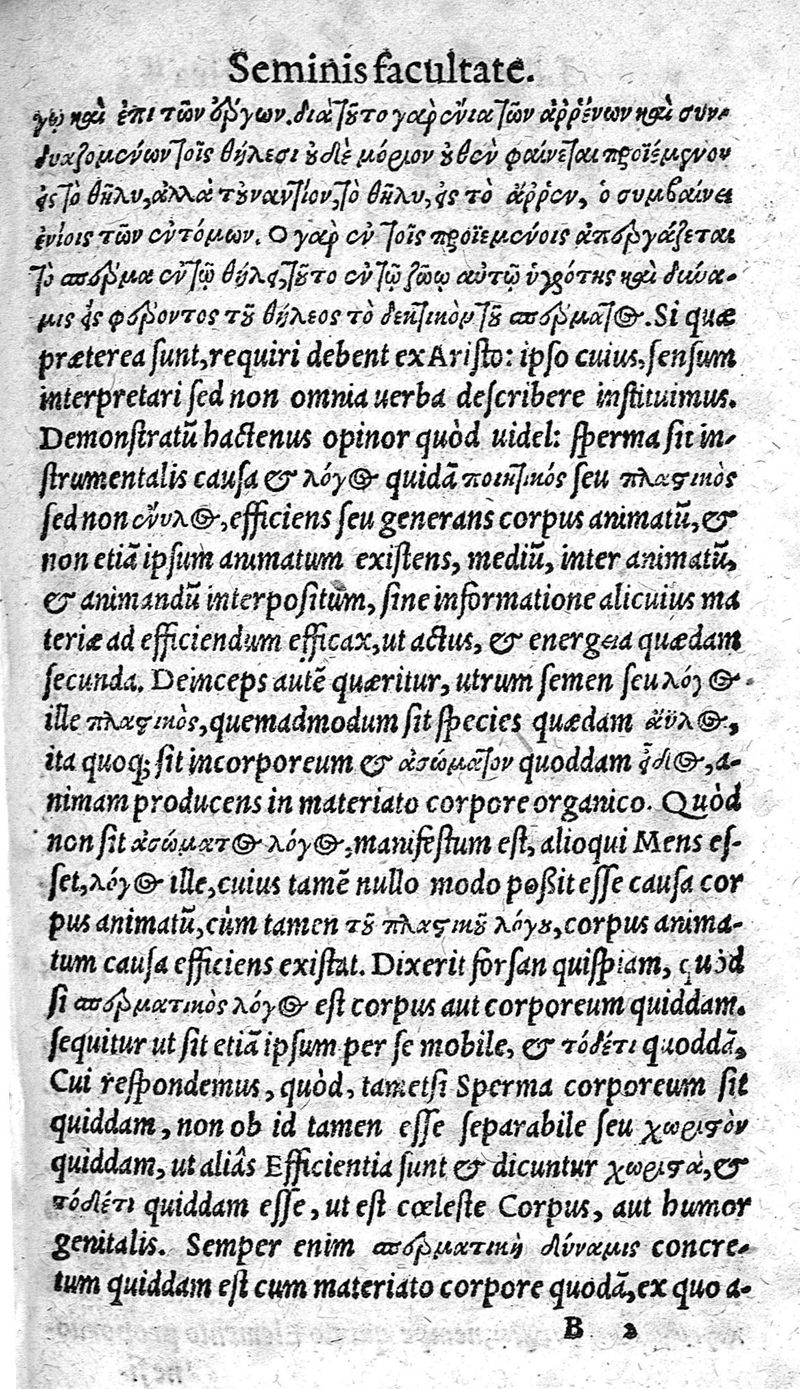 Seminis facultate.
γῳ καὶ ἐπι τῶν ἔργων. διὰ τοῦτο γαρ ἔνια τῶν ἀῤῥένων καὶ συν-
δυαζομένων τοῖς θήλεσι ουδὲ μόριον ουθὲν φαίνεται προϊέμενον
εἰς τὸ θῆλυ, ἀλλὰ τουναντίον, τὸ θῆλυ, εἰς τὸ ἄῤῥεν, ὁ συμβαίνει
ἐνίοις τῶν ἐντόμων. Ο γαρ ἐν τοῖς προϊεμένοις ἀπεργάζεται
τὸ σπέρμα ἐν τῷ θήλει, τοῦτο ἐν τῷ ζῴῳ αὐτῷ ὑγρότης καὶ δύνα-
μις εἰς φέροντος τοῦ θήλεος τὸ δεκτικὸν τοῦ σπέρματος. Si quæ
præterea ſunt, requiri debent ex Ariſto: ipſo cuius, ſenſum
interpretari ſed non omnia uerba deſcribere inſtituimus.
Demonſtratũ hactenus opinor quòd uidel: ſperma ſit in-
ſtrumentalis cauſa & λόγος quidã ποιητικός ſeu πλαστικὸς
ſed non ἔνυλος, efficiens ſeu generans corpus animatũ, &
non etiã ipſum animatum exiſtens, mediũ, inter animatũ,
& animandũ interpoſitum, ſine informatione alicuius ma
teriæ ad efficiendum efficax, ut actus, & energeia quædam
ſecunda. Deinceps autẽ quæritur, utrum ſemen ſeu λόγος
ille πλαστικὸς, quemadmodum ſit ſpecies quædam ἄϋλος,
ita quoq; ſit incorporeum & ἀσώματον quoddam εἶδος, a-
nimam producens in materiato corpore organico. Quòd
non ſit ἀσώματος λόγος, manifeſtum eſt, alioqui Mens eſ-
ſet, λόγος ille, cuius tamẽ nullo modo poßit eſſe cauſa cor
pus animatũ, cùm tamen τοῦ πλαστικοῦ λόγου, corpus anima-
tum cauſa efficiens exiſtat. Dixerit forſan quiſpiam, quòd
ſi σπερματικὸς λόγος eſt corpus aut corporeum quiddam.
ſequitur ut ſit etiã ipſum per ſe mobile, & τόδέτι quoddã,
Cui reſpondemus, quòd, tametſi Sperma corporeum ſit
quiddam, non ob id tamen eſſe ſeparabile ſeu χωριστὸν
quiddam, ut aliâs Efficientia ſunt & dicuntur χωριστὰ, &
τόδέτι quiddam eſſe, ut eſt cœleſte Corpus, aut humor
genitalis. Semper enim σπερματικὴ δύναμις concre-
tum quiddam eſt cum materiato corpore quodã, ex quo a-
B 2